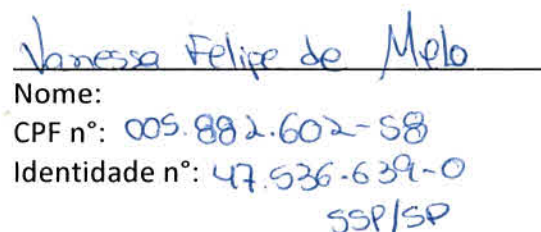 Vanessa Felipe de Melo
Nome:
CPF n°: 005.882.602-58
Identidade n°: 47.536.639-0
SSP/SP